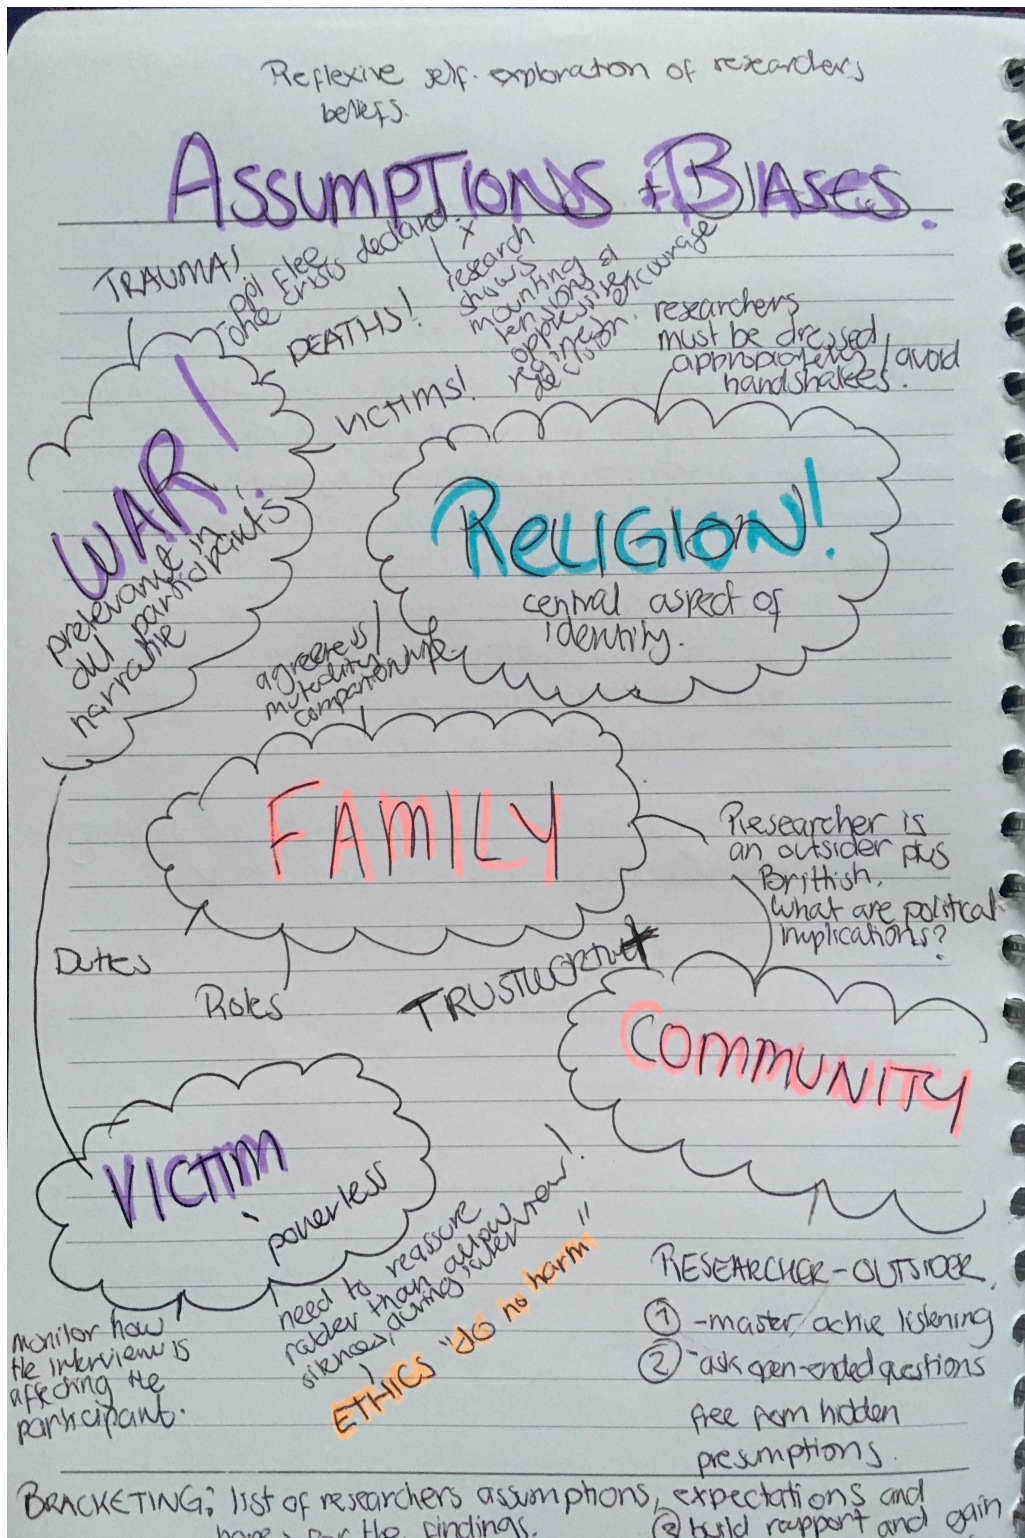 Reflexive self-exploration of researchers
beliefs.
ASSUMPTIONS + BIASES.
TRAUMA!
ppl flee
once crisis declared.
DEATHS!
VICTIMS!
research
shows
mounting
tensions &
oppressive
regime encourage
decision.
researchers
must be dressed
appropriately / avoid
handshakes.
WAR!
prelevant in
all participants
narrative
RELIGION!
central aspect of
identity.
mutuality
companionship
FAMILY
Duties
Roles
Researcher is
an outsider plus
Brittish.
What are political
implications?
TRUSTWORTHY
COMMUNITY
VICTIM
powerless
monitor how
the interview is
affecting the
participant.
need to reassure
rather than allow
silences, during interview!
ETHICS "do no harm"
RESEARCHER-OUTSIDER.
① -master active listening
② -ask open-ended questions
free from hidden
presumptions.
BRACKETING; list of researchers assumptions, expectations and
hopes for the findings.
③ build rapport and gain